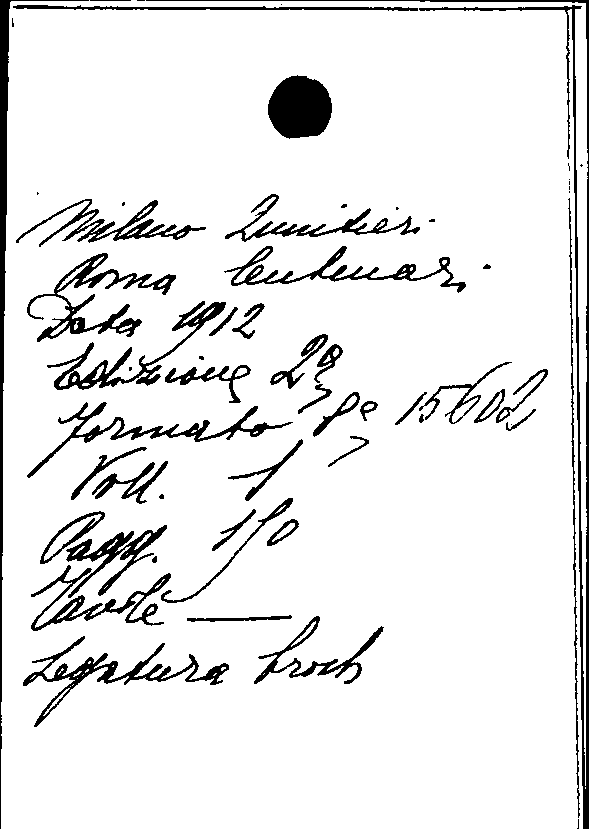 Milano Quintieri
Roma Centenari
Data 1912
Edizione 2ª
Formato 8º 15602
Voll. 1
Pagg. 150
Tavole —
Legatura broch